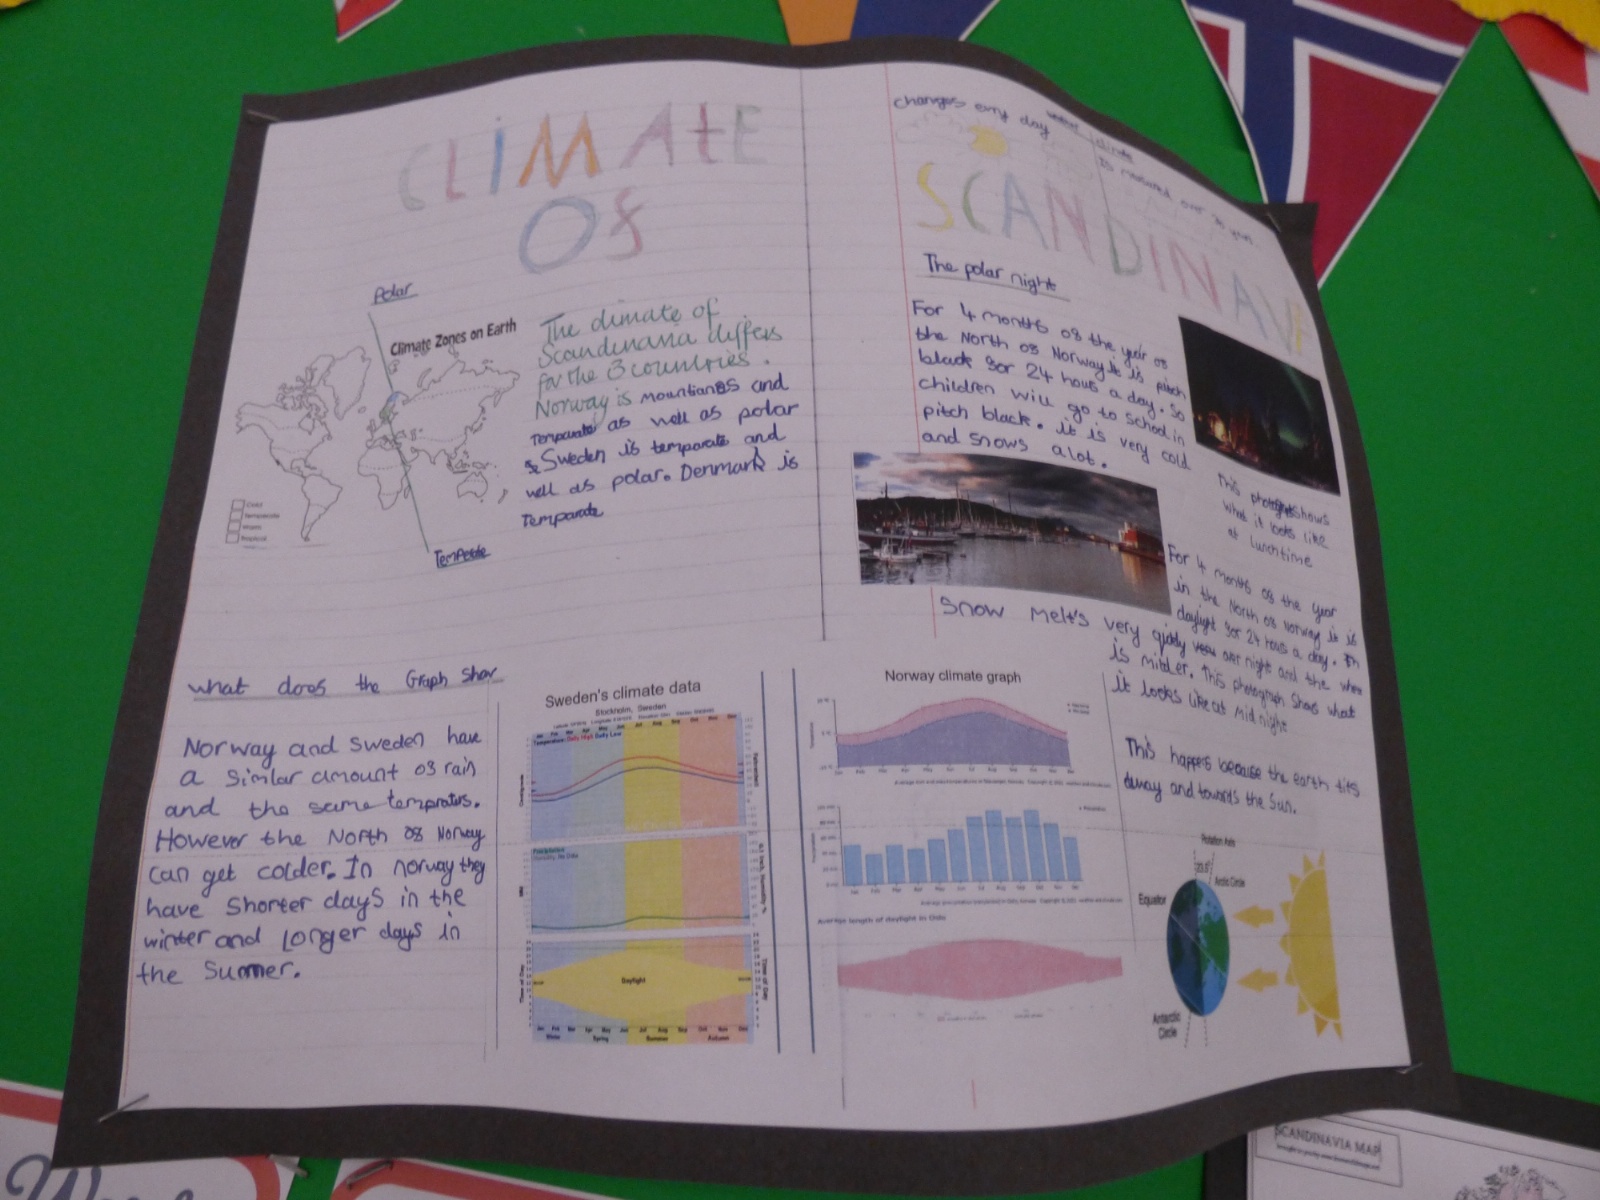 CLiMAtE
Of
changes every day
climate
is measured over 30 years
SCANDINAV
Polar
Climate Zones on Earth
Cold
Temperate
Warm
Tropical
The climate of
Scandinavia differs
for the 3 countries.
Norway is mountianos and
Temparate as well as polar
Sweden is temparate and
well as polar. Denmark is
Temparate
The polar night
For 4 months of the year of
the North of Norway it is pitch
black for 24 hours a day. So
children will go to school in
pitch black. it is very cold
and snows alot.
This photograph shows
what it looks like
at lunchtime
For 4 months of the year
in the North of Norway it is
daylight for 24 hours a day.
Snow Melt's very over night and the
is milder. This photograph shows what
it looks like at Midnight
This happens because the earth tilts
away and towards the Sun.
what does the Graph show
Norway and Sweden have
a similar amount of rain
and the same tempratus.
However the North of Norway
can get colder. In norway they
have shorter days in the
winter and longer days in
the Summer.
Sweden's climate data
Stockholm, Sweden
Temperature: Daily High Daily Low
Precipitation
Daylight
Time of Day
Time of Day
Winter Spring Summer Autumn
Norway climate graph
Average length of daylight in Oslo
Rotation Axis
23.5°
Arctic Circle
Equator
Antarctic
Circle
SCANDINAVIA MAP